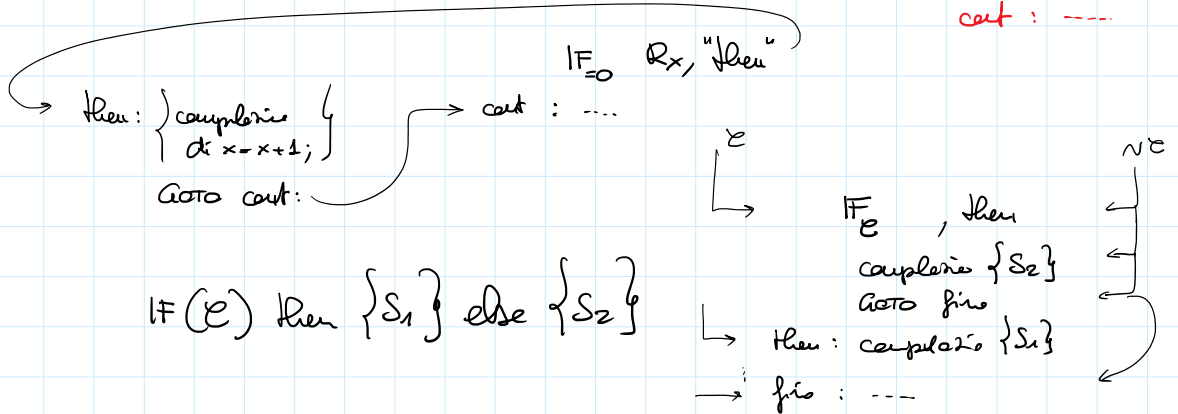 cont : ----
IF=0 Rx, "then"
then: { compilazione
di x=x+1; }
GOTO cont:
cont : ----
C
~C
IF C , then
compilazione {S2}
GOTO fine
IF (C) then {S1} else {S2}
then: compilazione {S1}
fine : ----